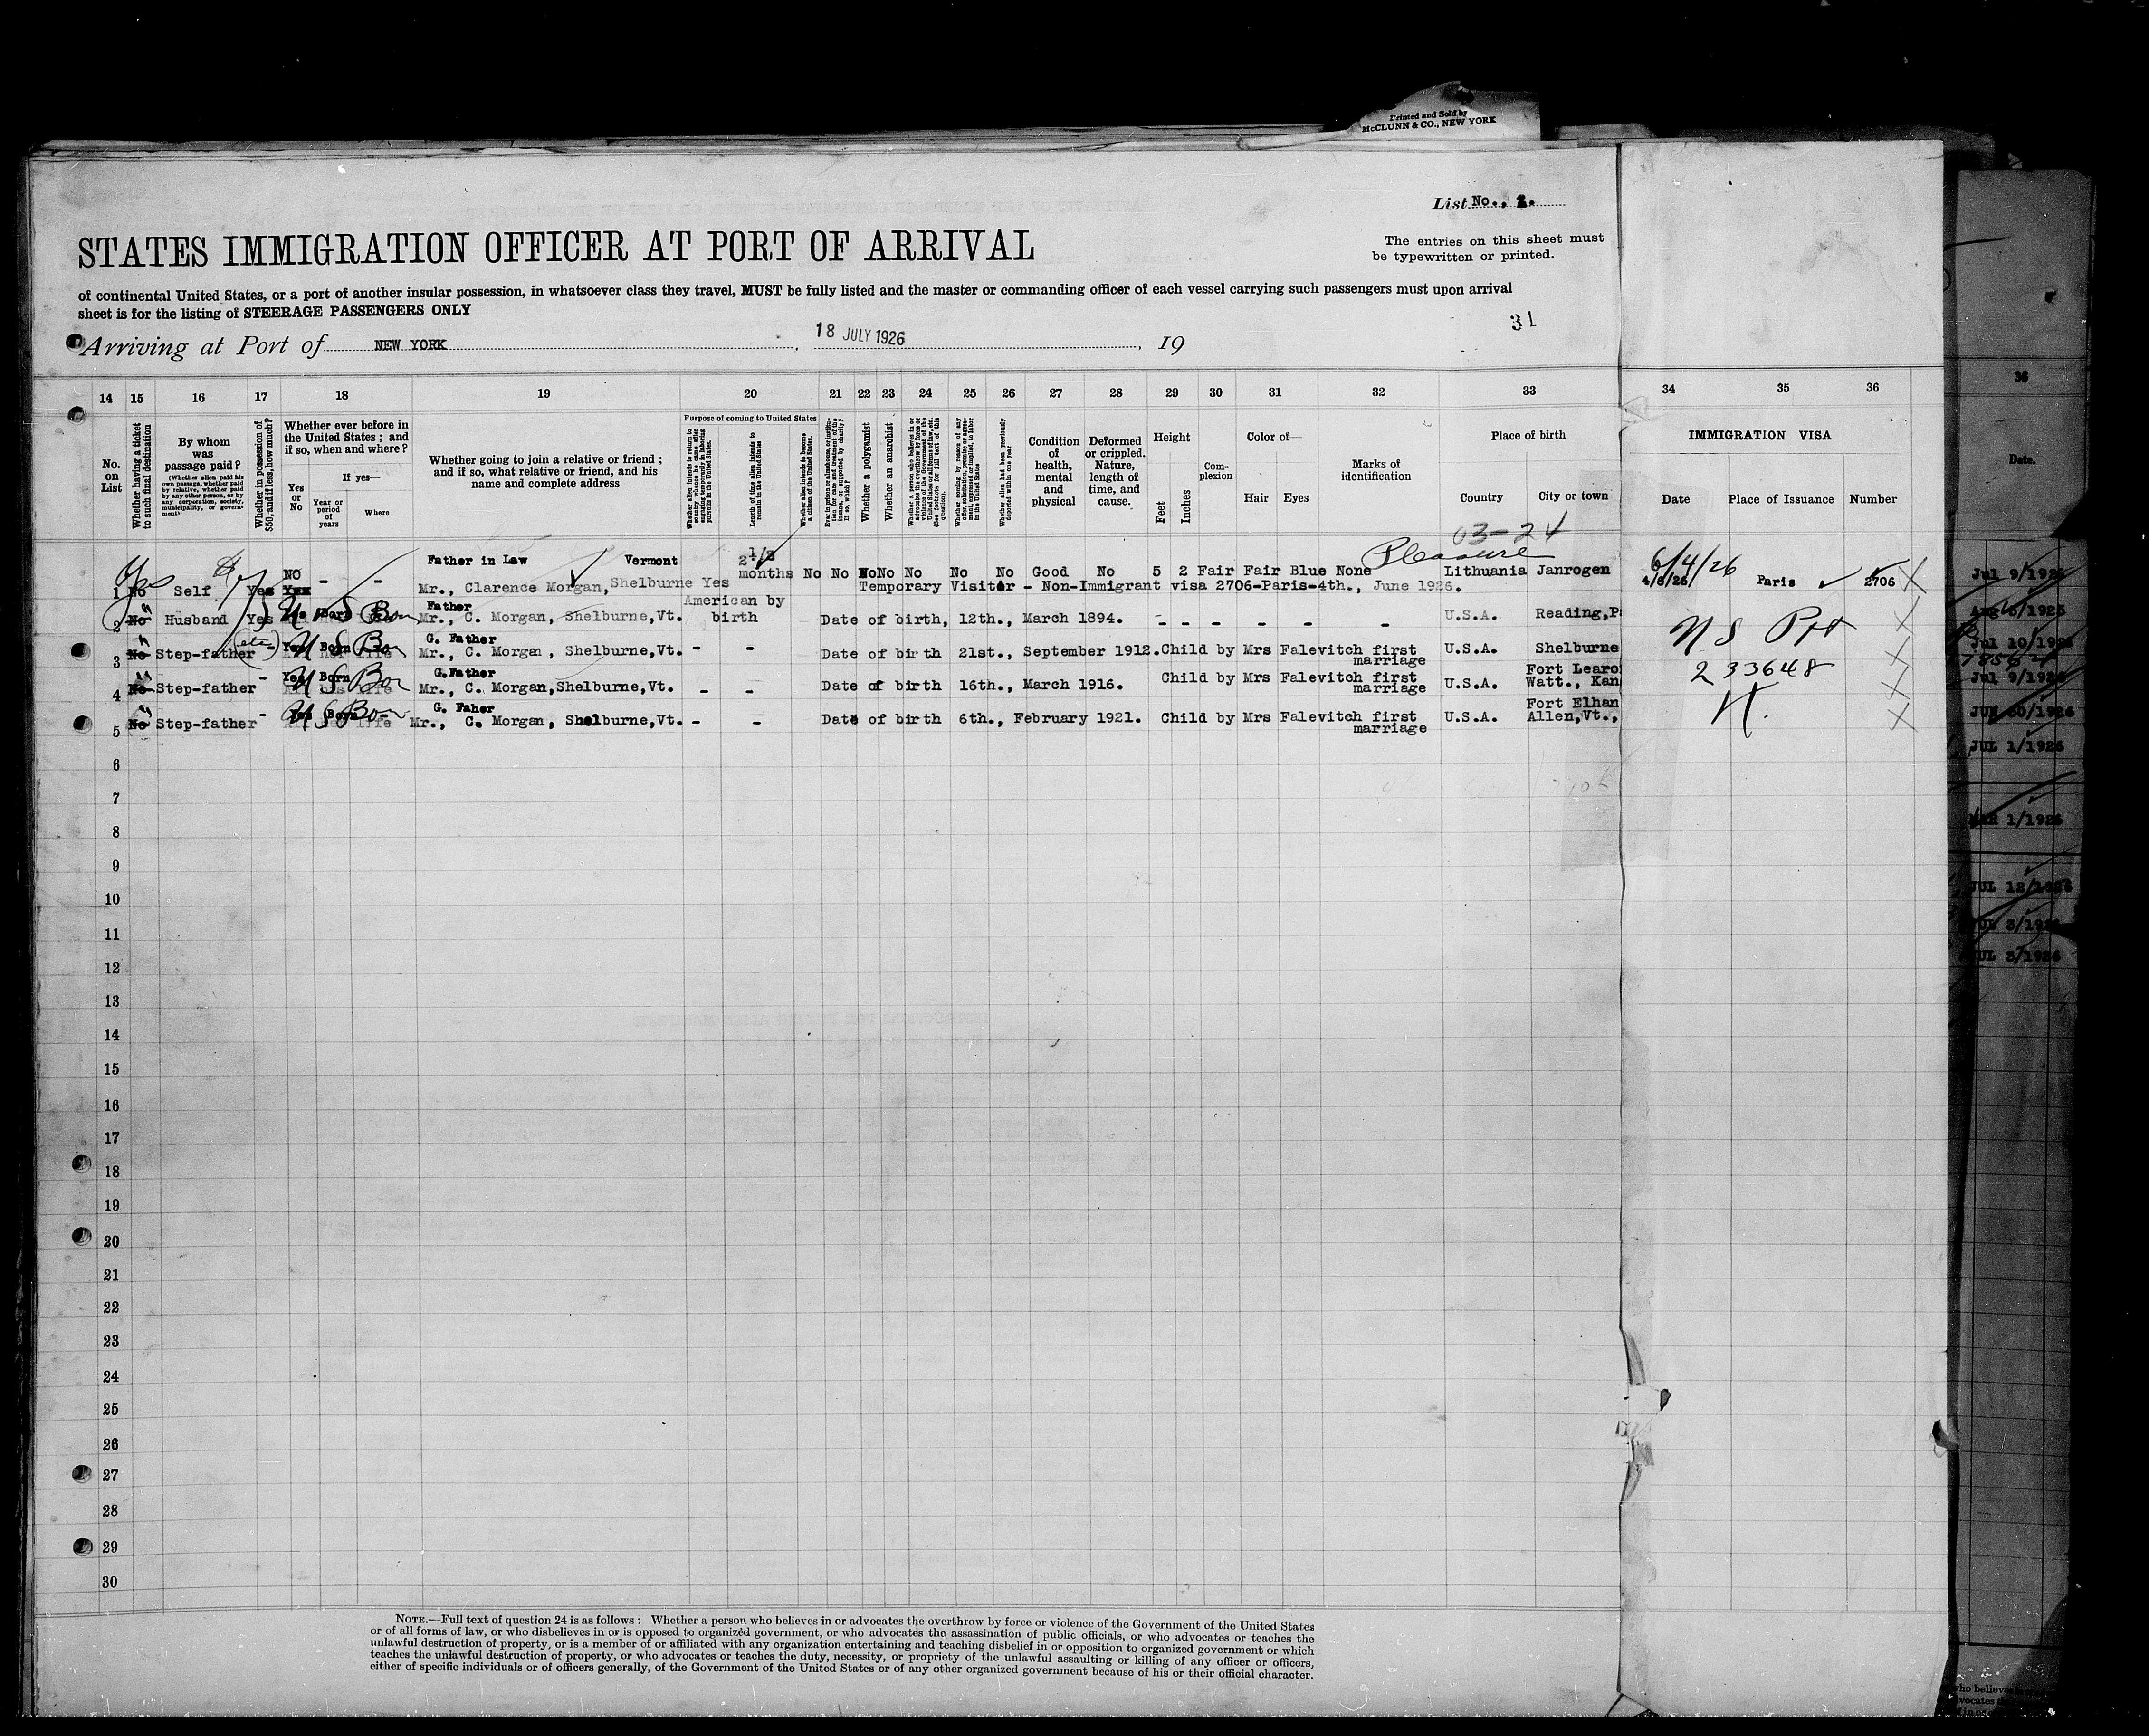 Printed and Sold by
McCLUNN & CO., NEW YORK
List No., 2.
STATES IMMIGRATION OFFICER AT PORT OF ARRIVAL
The entries on this sheet must
be typewritten or printed.
of continental United States, or a port of another insular possession, in whatsoever class they travel, MUST be fully listed and the master or commanding officer of each vessel carrying such passengers must upon arrival
sheet is for the listing of STEERAGE PASSENGERS ONLY
31
Arriving at Port of NEW YORK, 18 JULY 1926, 19
14 15 16 17 18 19 20 21 22 23 24 25 26 27 28 29 30 31 32 33 34 35 36
No. on List
Whether having a ticket to such final destination
By whom was passage paid?
(Whether alien paid his own passage, whether paid by relative, whether paid by any other person, or by any corporation, society, municipality, or government)
Whether in possession of $50, and if less, how much?
Whether ever before in the United States; and if so, when and where?
If yes—
Yes or No
Year or period of years
Where
Whether going to join a relative or friend; and if so, what relative or friend, and his name and complete address
Purpose of coming to United States
Whether alien intends to return to country whence he came after engaging temporarily in laboring pursuits in the United States.
Length of time alien intends to remain in the United States
Whether alien intends to become a citizen of the United States.
Ever in prison or almshouse, or institution for care and treatment of the insane, or supported by charity? If so, which?
Whether a polygamist
Whether an anarchist
Whether a person who believes in or advocates the overthrow by force or violence of the Government of the United States or all forms of law, etc. (See footnote for full text of this question).
Whether coming by reason of any offer, solicitation, promise or agreement, expressed or implied, to labor in the United States
Whether alien had been previously deported within one year
Condition of health, mental and physical
Deformed or crippled. Nature, length of time, and cause.
Height
Feet
Inches
Complexion
Color of—
Hair Eyes
Marks of identification
Place of birth
Country City or town
IMMIGRATION VISA
Date Place of Issuance Number
03-24
Pleasure
Father in Law Vermont 2 1/2 months
1 No Yes Self Yes NO - - Mr., Clarence Morgan, Shelburne Yes No No No No No No No Good No 5 2 Fair Fair Blue None Lithuania Janrogen 6/4/26 4/6/26 Paris 2706
Temporary Visitor - Non-Immigrant visa 2706-Paris-4th., June 1926.
2 No " Husband Yes U S Born Father Mr., C. Morgan, Shelburne,Vt. American by birth Date of birth, 12th., March 1894. - - - - - - U.S.A. Reading,P
N S PPt
3 No " Step-father - Yes Born U S Born G. Father Mr., C. Morgan, Shelburne,Vt. - - Date of birth 21st., September 1912. Child by Mrs Falevitch first marriage U.S.A. Shelburne
233648
4 No " Step-father - Yes Born U S Born G.Father Mr., C. Morgan,Shelburne,Vt. - - Date of birth 16th., March 1916. Child by Mrs Falevitch first marriage U.S.A. Fort Learo Watt., Kan
5 No " Step-father - Yes Born U S Born G. Faher Mr., C. Morgan, Shelburne,Vt. - - Date of birth 6th., February 1921. Child by Mrs Falevitch first marriage U.S.A. Fort Elhan Allen,Vt.,
6
7
8
9
10
11
12
13
14
15
16
17
18
19
20
21
22
23
24
25
26
27
28
29
30
NOTE.—Full text of question 24 is as follows: Whether a person who believes in or advocates the overthrow by force or violence of the Government of the United States
or of all forms of law, or who disbelieves in or is opposed to organized government, or who advocates the assassination of public officials, or who advocates or teaches the
unlawful destruction of property, or is a member of or affiliated with any organization entertaining and teaching disbelief in or opposition to organized government or which
teaches the unlawful destruction of property, or who advocates or teaches the duty, necessity, or propriety of the unlawful assaulting or killing of any officer or officers,
either of specific individuals or of officers generally, of the Government of the United States or of any other organized government because of his or their official character.
36
Date.
Jul 9/1926
Aug 5/1925
Jul 10/1926
Jul 9/1926
JUN 30/1926
JUL 1/1926
MAR 1/1926
JUL 12/1926
JUL 3/1926
JUL 3/1926
who believes
advocates the